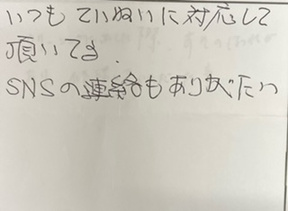 いつもていねいに対応して
頂いてる.
SNSの連絡もありがたい